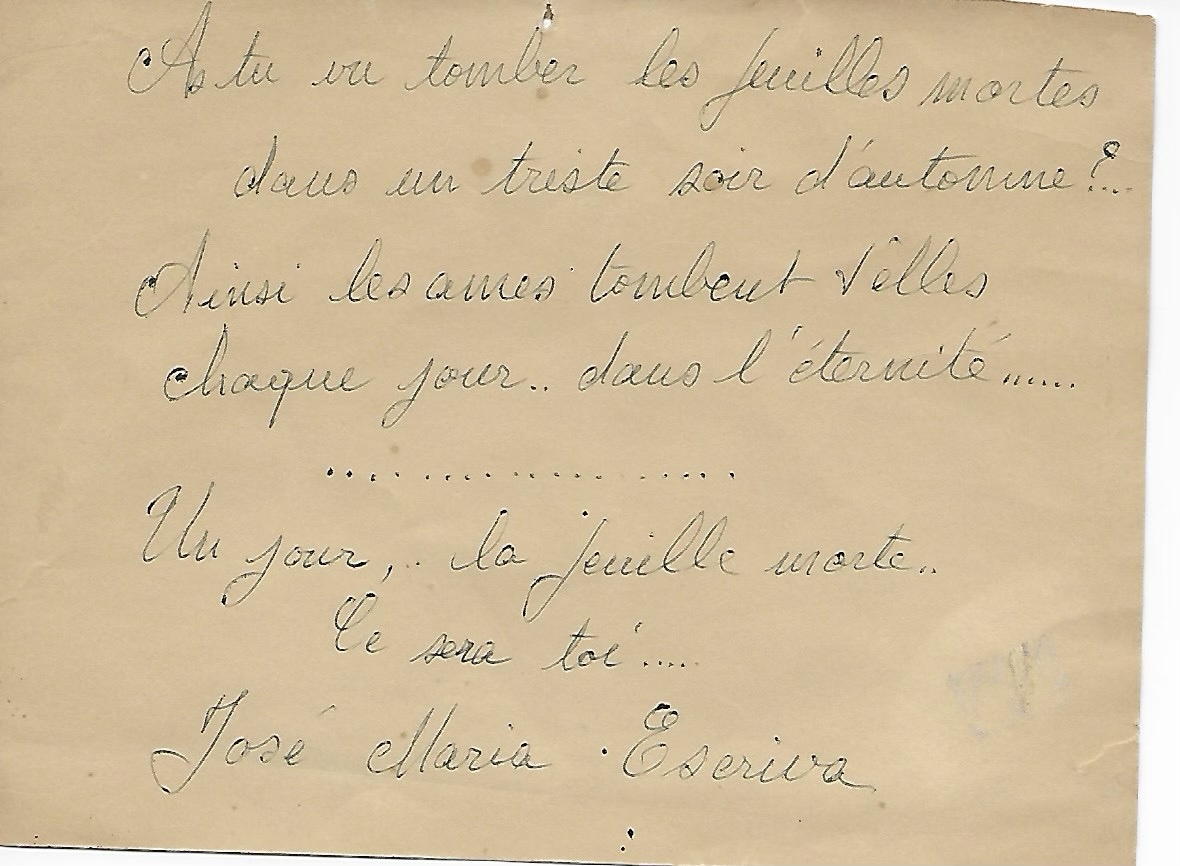 As tu vu tomber les feuilles mortes
dans un triste soir d'automne?...
Ainsi les ames tombent t'elles
chaque jour.. dans l'éternité......
...................
Un jour,.. la feuille morte..
Ce sera toi....
José Maria Escriva